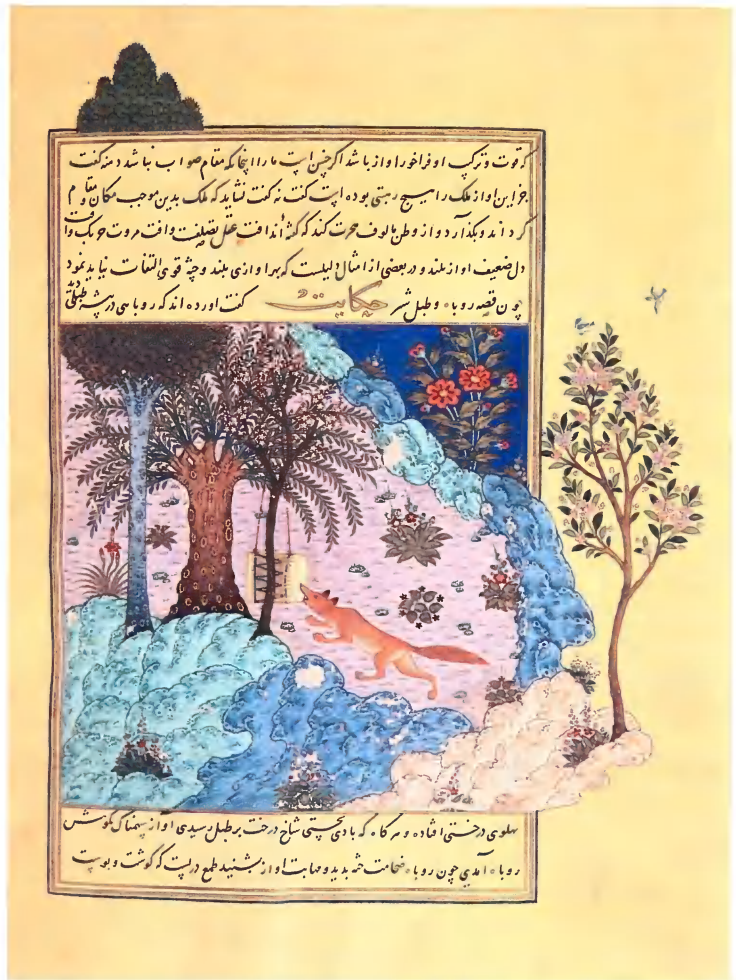 که قوت و ترکیب او فراخور آواز باشد اگر چنین است ما را اینجا که مقام صواب نباشد دمنه گفت
جز این آواز ملک را هیچ ریبتی بوده است گفت نه گفت نشاید که ملک بدین موجب مکان و مقام
گرداند و بگذارد و از وطن مالوف هجرت کند که گفته‌اند آفت عقل تصلفست و آفت مروت چربک و آفت
دل ضعیف آواز بلند و در بعضی از امثال دلیلست که بهر آوازی بلند و جثه قوی التفات نباید نمود
چون قصه روباه و طبل شیر حکایت گفت آورده‌اند که روباهی در بیشه طبلی دید
پهلوی درختی افتاده و هر گاه که بادی بجستی شاخ درخت بر طبل رسیدی آواز سهمناک بگوش
روباه آمدی چون روباه ضخامت جثه بدید و مهابت آواز بشنید طمع دربست که گوشت و پوست